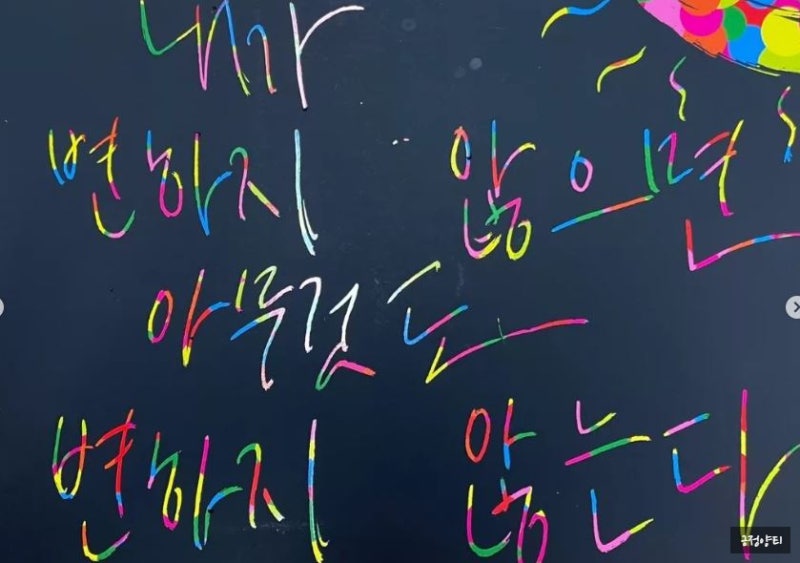 내가
변하지 않으면
아무것도
변하지 않는다
긍정양티